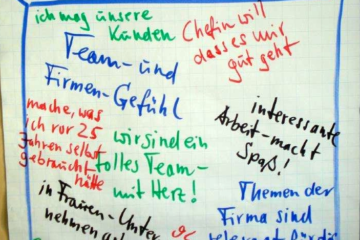 ich mag unsere
Kunden
Chefin will
dass es mir
gut geht
Team- und
Firmen-Gefühl
mache, was
ich vor 25
Jahren selbst
gebraucht
hätte
wir sind ein
tolles Team-
mit Herz!
interessante
Arbeit-macht
Spaß!
in Frauen-Unter
nehmen
Themen der
Firma sind
relevant für